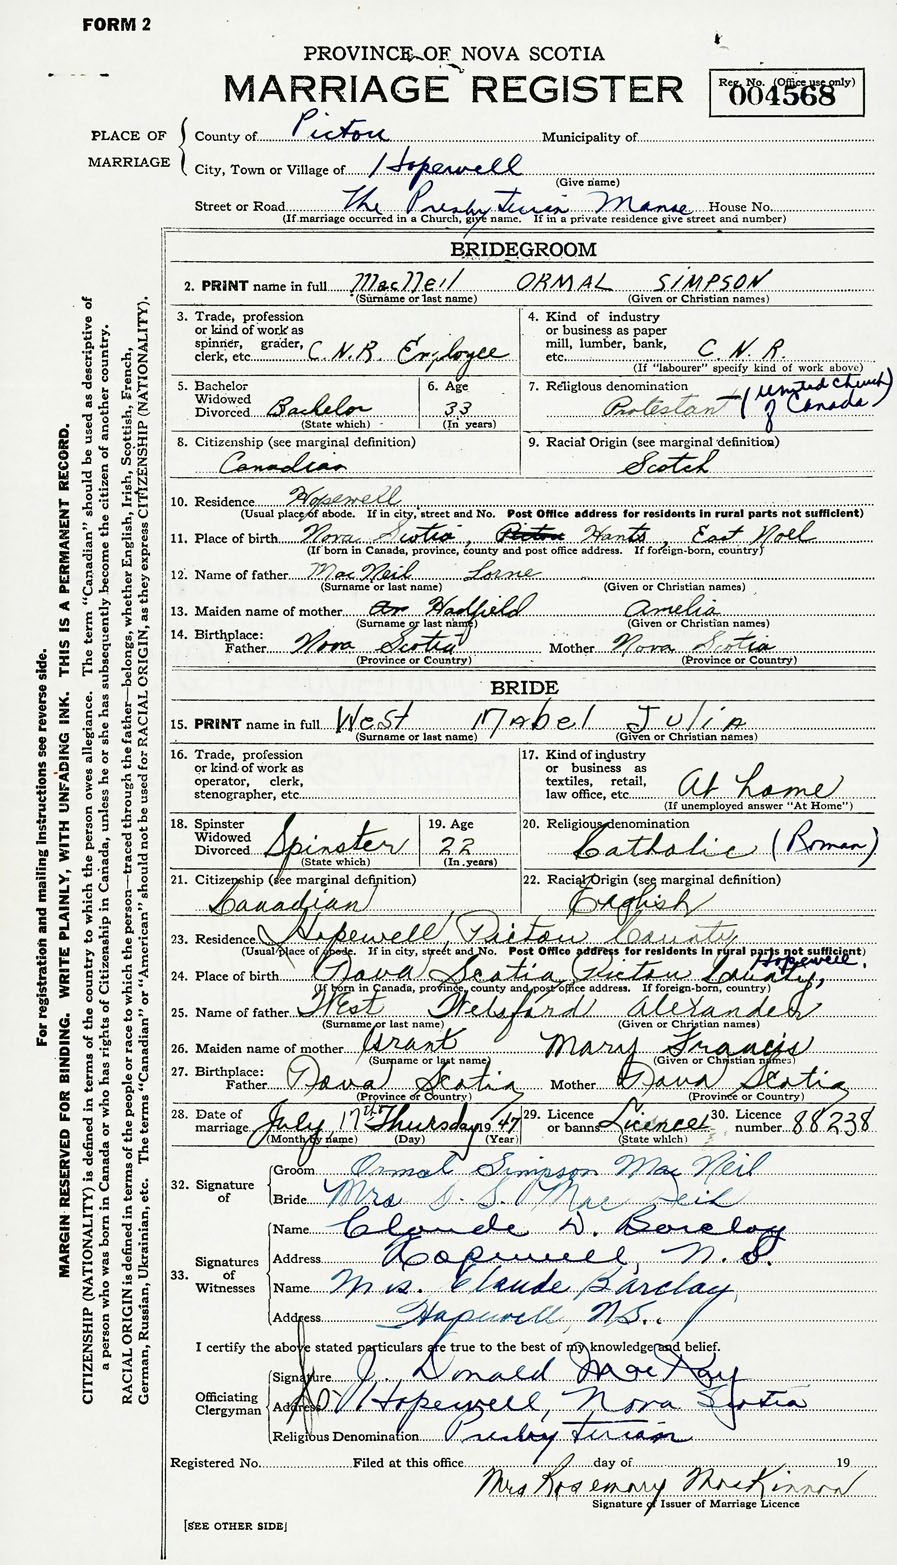 FORM 2
PROVINCE OF NOVA SCOTIA
MARRIAGE REGISTER
Reg. No. (Office use only)
004568
PLACE OF MARRIAGE
County of Pictou Municipality of
City, Town or Village of Hopewell
(Give name)
Street or Road The Presbyterian Manse House No.
(If marriage occurred in a Church, give name. If in a private residence give street and number)
BRIDEGROOM
2. PRINT name in full MacNeil ORMAL SIMPSON
(Surname or last name) (Given or Christian names)
3. Trade, profession or kind of work as spinner, grader, clerk, etc. C.N.R. Employee
4. Kind of industry or business as paper mill, lumber, bank, etc. C.N.R.
(If "labourer" specify kind of work above)
5. Bachelor Widowed Divorced Bachelor
(State which)
6. Age 33
(In years)
7. Religious denomination Protestant (United Church of Canada)
8. Citizenship (see marginal definition) Canadian
9. Racial Origin (see marginal definition) Scotch
10. Residence Hopewell
(Usual place of abode. If in city, street and No. Post Office address for residents in rural parts not sufficient)
11. Place of birth Nova Scotia, Pictou Hants, East Noel
(If born in Canada, province, county and post office address. If foreign-born, country)
12. Name of father MacNeil Lorne
(Surname or last name) (Given or Christian names)
13. Maiden name of mother Hadfield Amelia
(Surname or last name) (Given or Christian names)
14. Birthplace:
Father Nova Scotia Mother Nova Scotia
(Province or Country) (Province or Country)
BRIDE
15. PRINT name in full West Mabel Julia
(Surname or last name) (Given or Christian names)
16. Trade, profession or kind of work as operator, clerk, stenographer, etc.
17. Kind of industry or business as textiles, retail, law office, etc. At home
(If unemployed answer "At Home")
18. Spinster Widowed Divorced Spinster
(State which)
19. Age 22
(In years)
20. Religious denomination Catholic (Roman)
21. Citizenship (see marginal definition) Canadian
22. Racial Origin (see marginal definition) English
23. Residence Hopewell, Pictou County
(Usual place of abode. If in city, street and No. Post Office address for residents in rural parts not sufficient)
24. Place of birth Nova Scotia Pictou County, Hopewell.
(If born in Canada, province, county and post office address. If foreign-born, country)
25. Name of father West Welsford Alexander
(Surname or last name) (Given or Christian names)
26. Maiden name of mother Grant Mary Francis
(Surname or last name) (Given or Christian names)
27. Birthplace:
Father Nova Scotia Mother Nova Scotia
(Province or Country) (Province or Country)
28. Date of marriage July 17th Thursday 1947
(Month by name) (Day) (Year)
29. Licence or banns Licence
(State which)
30. Licence number 88238
32. Signature of
Groom Ormal Simpson MacNeil
Bride Mrs O. S. MacNeil
33. Signatures of Witnesses
Name Claude D. Barclay
Address Hopewell, N.S.
Name Mrs. Claude Barclay
Address Hopewell, N.S.
I certify the above stated particulars are true to the best of my knowledge and belief.
Officiating Clergyman
Signature J. Donald MacKay
Address Hopewell, Nova Scotia
Religious Denomination Presbyterian
Registered No. Filed at this office day of 19
Mrs Rosemary MacKinnon
Signature of Issuer of Marriage Licence
[SEE OTHER SIDE]
For registration and mailing instructions see reverse side.
MARGIN RESERVED FOR BINDING. WRITE PLAINLY, WITH UNFADING INK. THIS IS A PERMANENT RECORD.
CITIZENSHIP (NATIONALITY) is defined in terms of the country to which the person owes allegiance. The term "Canadian" should be used as descriptive of
a person who was born in Canada or who has rights of Citizenship in Canada, unless he or she has subsequently become the citizen of another country.
RACIAL ORIGIN is defined in terms of the people or race to which the person—traced through the father—belongs, whether English, Irish, Scottish, French,
German, Russian, Ukrainian, etc. The terms "Canadian" or "American" should not be used for RACIAL ORIGIN, as they express CITIZENSHIP (NATIONALITY).